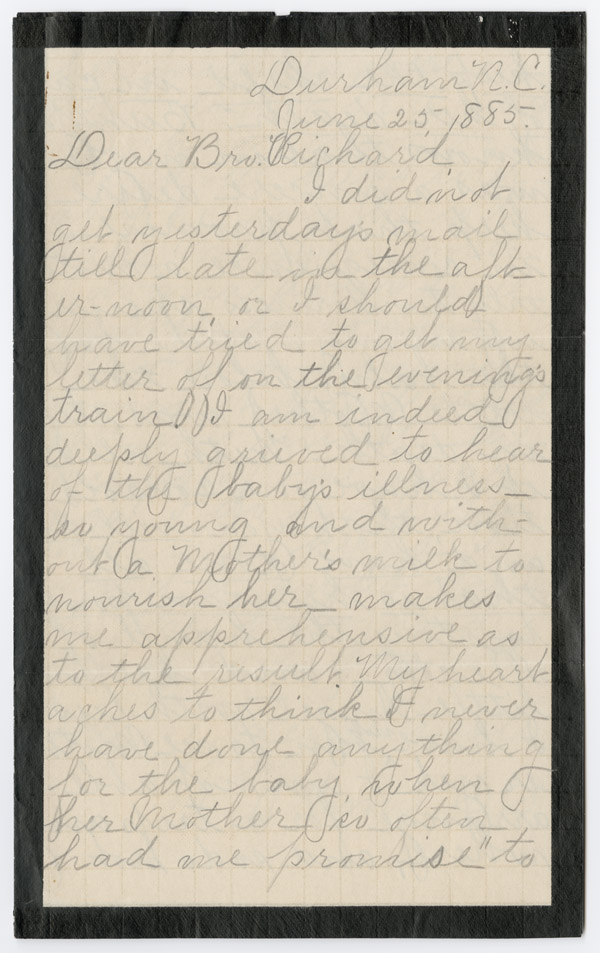 Durham N.C.
June 25, 1885.
Dear Bro. Richard
I did not
get yesterday's mail
till late in the aft-
er-noon, or I should
have tried to get my
letter of on the evening's
train. I am indeed
deeply grieved to hear
of the baby's illness—
so young and with-
out a Mother's milk to
nourish her— makes
me apprehensive as
to the result. My heart
aches to think I never
have done anything
for the baby, when
her Mother so often
had me promise" to